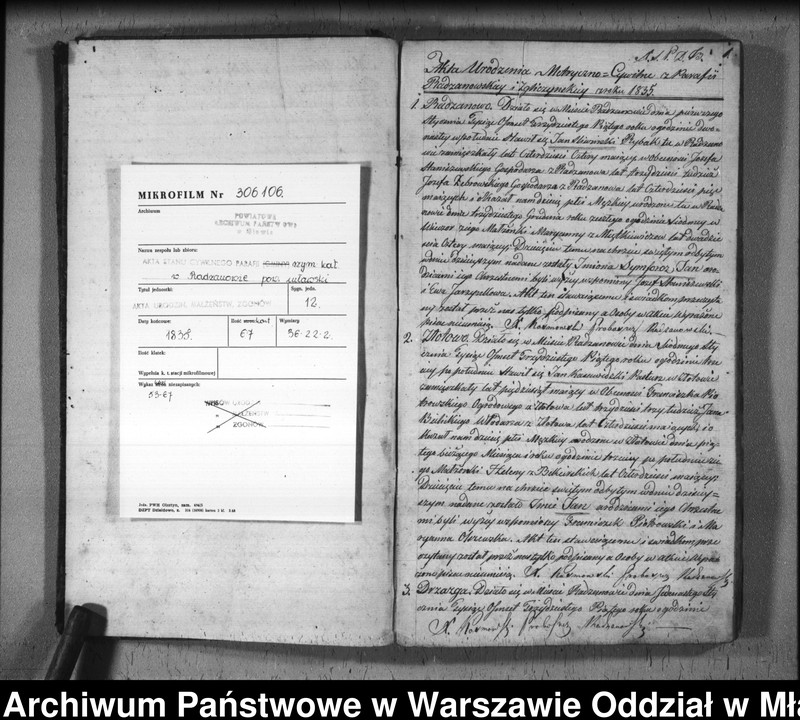 MIKROFILM Nr 306106.
Archiwum
POWIATOWE
ARCHIWUM PAŃSTWOWE
w Mławie
Nazwa zespołu lub zbioru:
AKTA STANU CYWILNEGO PARAFII rzym kat
w Radzanowie pow. mławski
Tytuł jednostki: Sygn. jedn.
AKTA URODZIN, MAŁŻEŃSTW, ZGONÓW 12.
Daty końcowe: Ilość Wymiary
1835. 67 36·22·2.
Ilość klatek:
Wypełnia k. t. stacji mikrofilmowej
Wykaz stron niezapisanych:
53-67
WPISÓW URODZ
" MAŁŻEŃSTW
" ZGONÓW
1
Akta Urodzenia Metryczno=Cywilne z Parafii
Radzanowskiey i Zgliczynskiey z roku 1835.
1. Radzanowo. Działo się w Mieście Radzanowie dnia pierwszego
Stycznia Tysiąc Ośmset Trzydziestego Piątego roku o godzinie dwu-
nasty w południe Stawił się Jan Rybak tu w Radzano
wie zamieszkały lat Czterdzieści Cztery maiący w obecności Józefa
Staniszewskiego Gospodarza z Radzanowa lat trzydzieści tudzież
Józefa Żebrowskiego Gospodarza z Radzanowa lat Czterdzieści pięć
maiących i okazał nam dziecię płci Męzkiey urodzone tu w Radza
nowie dnia trzydziestego Grudnia roku zeszłego o godzinie Siódmey w
wieczór z iego Małżonki Maryanny z lat dwadzie
ścia Cztery maiącey Dziecięciu temu na chrzcie świętym odbytym
w dniu dzisieyszym nadane zostały Imiona Symforoz Jan a ro
dzicami iego Chrzestnemi byli wyżey wspomniony Józef Staniszewski
i Ewa Jarzyellowa. Akt ten stawaiącemu i świadkom przeczyta
ny został przez nas tylko podpisany a Osoby w akcie wyrażone
pisać nieumieią. X. Proboszcz
2. Zlotowo. Działo się w Mieście Radzanowie dnia Siódmego Sty
cznia Tysiąc Ośmset Trzydziestego Piątego roku o godzinie trze
ciey po południu Stawił się Jan w Złotowie
zamieszkały lat pięćdziesiąt maiący w Obecności Gromiszka Pio
trowskiego Ogrodowego z Złotowa lat trzydzieści trzy tudzież Jana
Bielickiego Włodarza z Złotowa lat Czterdzieści maiących i o
kazał nam dziecię płci Męzkiey urodzone w Złotowie dnia pią
tego bieżącego Miesiąca i roku o godzinie trzeciey po południu z ie
go Małżonki Heleny z lat Czterdzieści maiącey
Dziecięciu temu na chrzcie świętym odbytym w dniu dzisiey-
szym nadane zostało Imie Jan a rodzicami iego Chrzestne
mi byli wyżey wspomniony Piotrowski i Ma
ryanna Olszewska. Akt ten stawaiącemu i świadkom prze
czytany został przez nas tylko podpisany a Osoby w akcie wyra
żone pisać nieumieią. X. Proboszcz
3. Drzazga. Działo się w Mieście Radzanowie dnia Siódmego Sty
cznia Tysiąc Ośmset Trzydziestego Piątego roku o godzinie
X. Proboszcz
Archiwum Państwowe w Warszawie Oddział w Mła